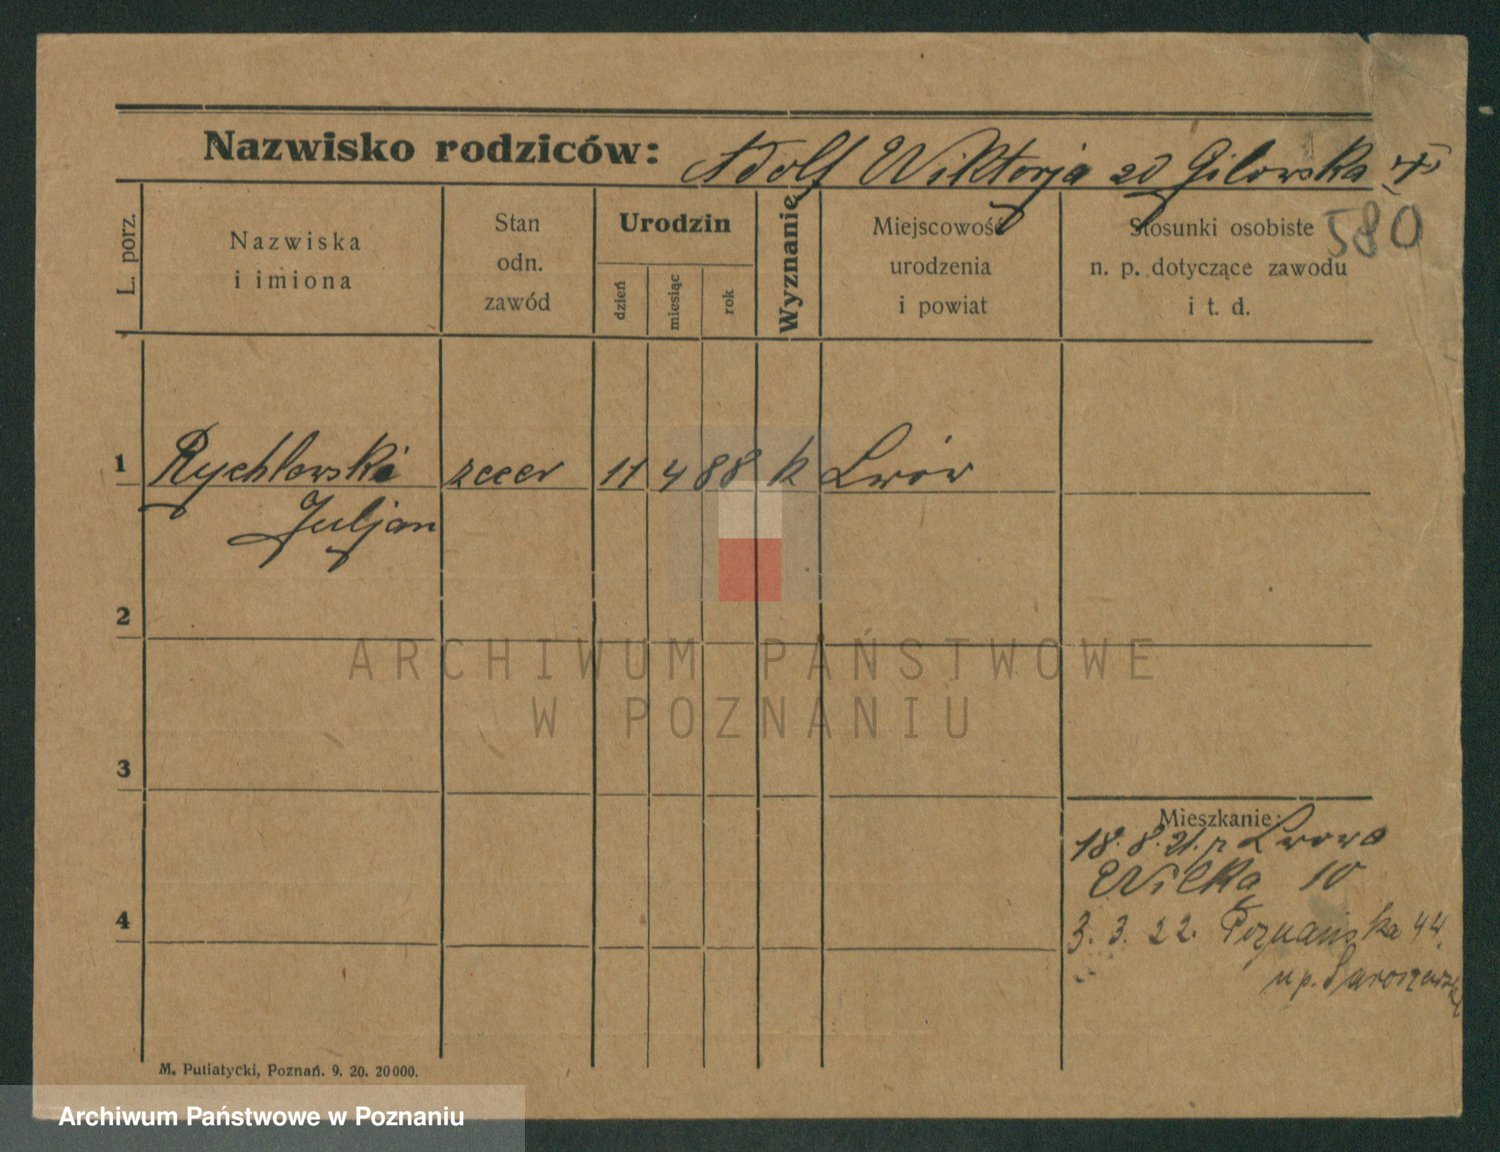 Nazwisko rodziców: Adolf Wiktorja zd Gilowska
580
L. porz.
Nazwiska
i imiona
Stan
odn.
zawód
Urodzin
dzień
miesiąc
rok
Wyznanie
Miejscowość
urodzenia
i powiat
Stosunki osobiste
n. p. dotyczące zawodu
i t. d.
1 Rychlowski zecer 11 4 88 k Lwów
Juljan
2
3
4
Mieszkanie:
18. 8. 21. z Lwowa
Wilka 10
3. 3. 22. Poznańska 44.
u p.
M. Putiatycki, Poznań. 9. 20. 20000.
ARCHIWUM PAŃSTWOWE
W POZNANIU
Archiwum Państwowe w Poznaniu